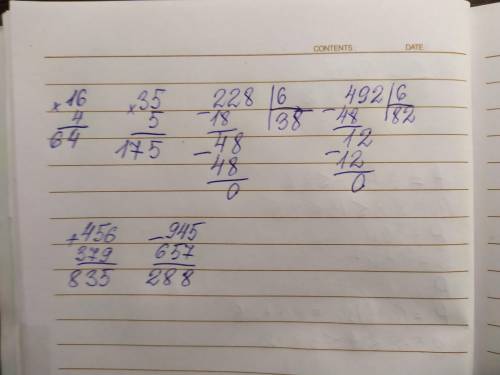 CONTENTS DATE
×16 ×35 -228 |6 -492 |6
4 5 18 38 48 82
64 175 -48 -12
48 12
0 0
+456 -945
379 657
835 288